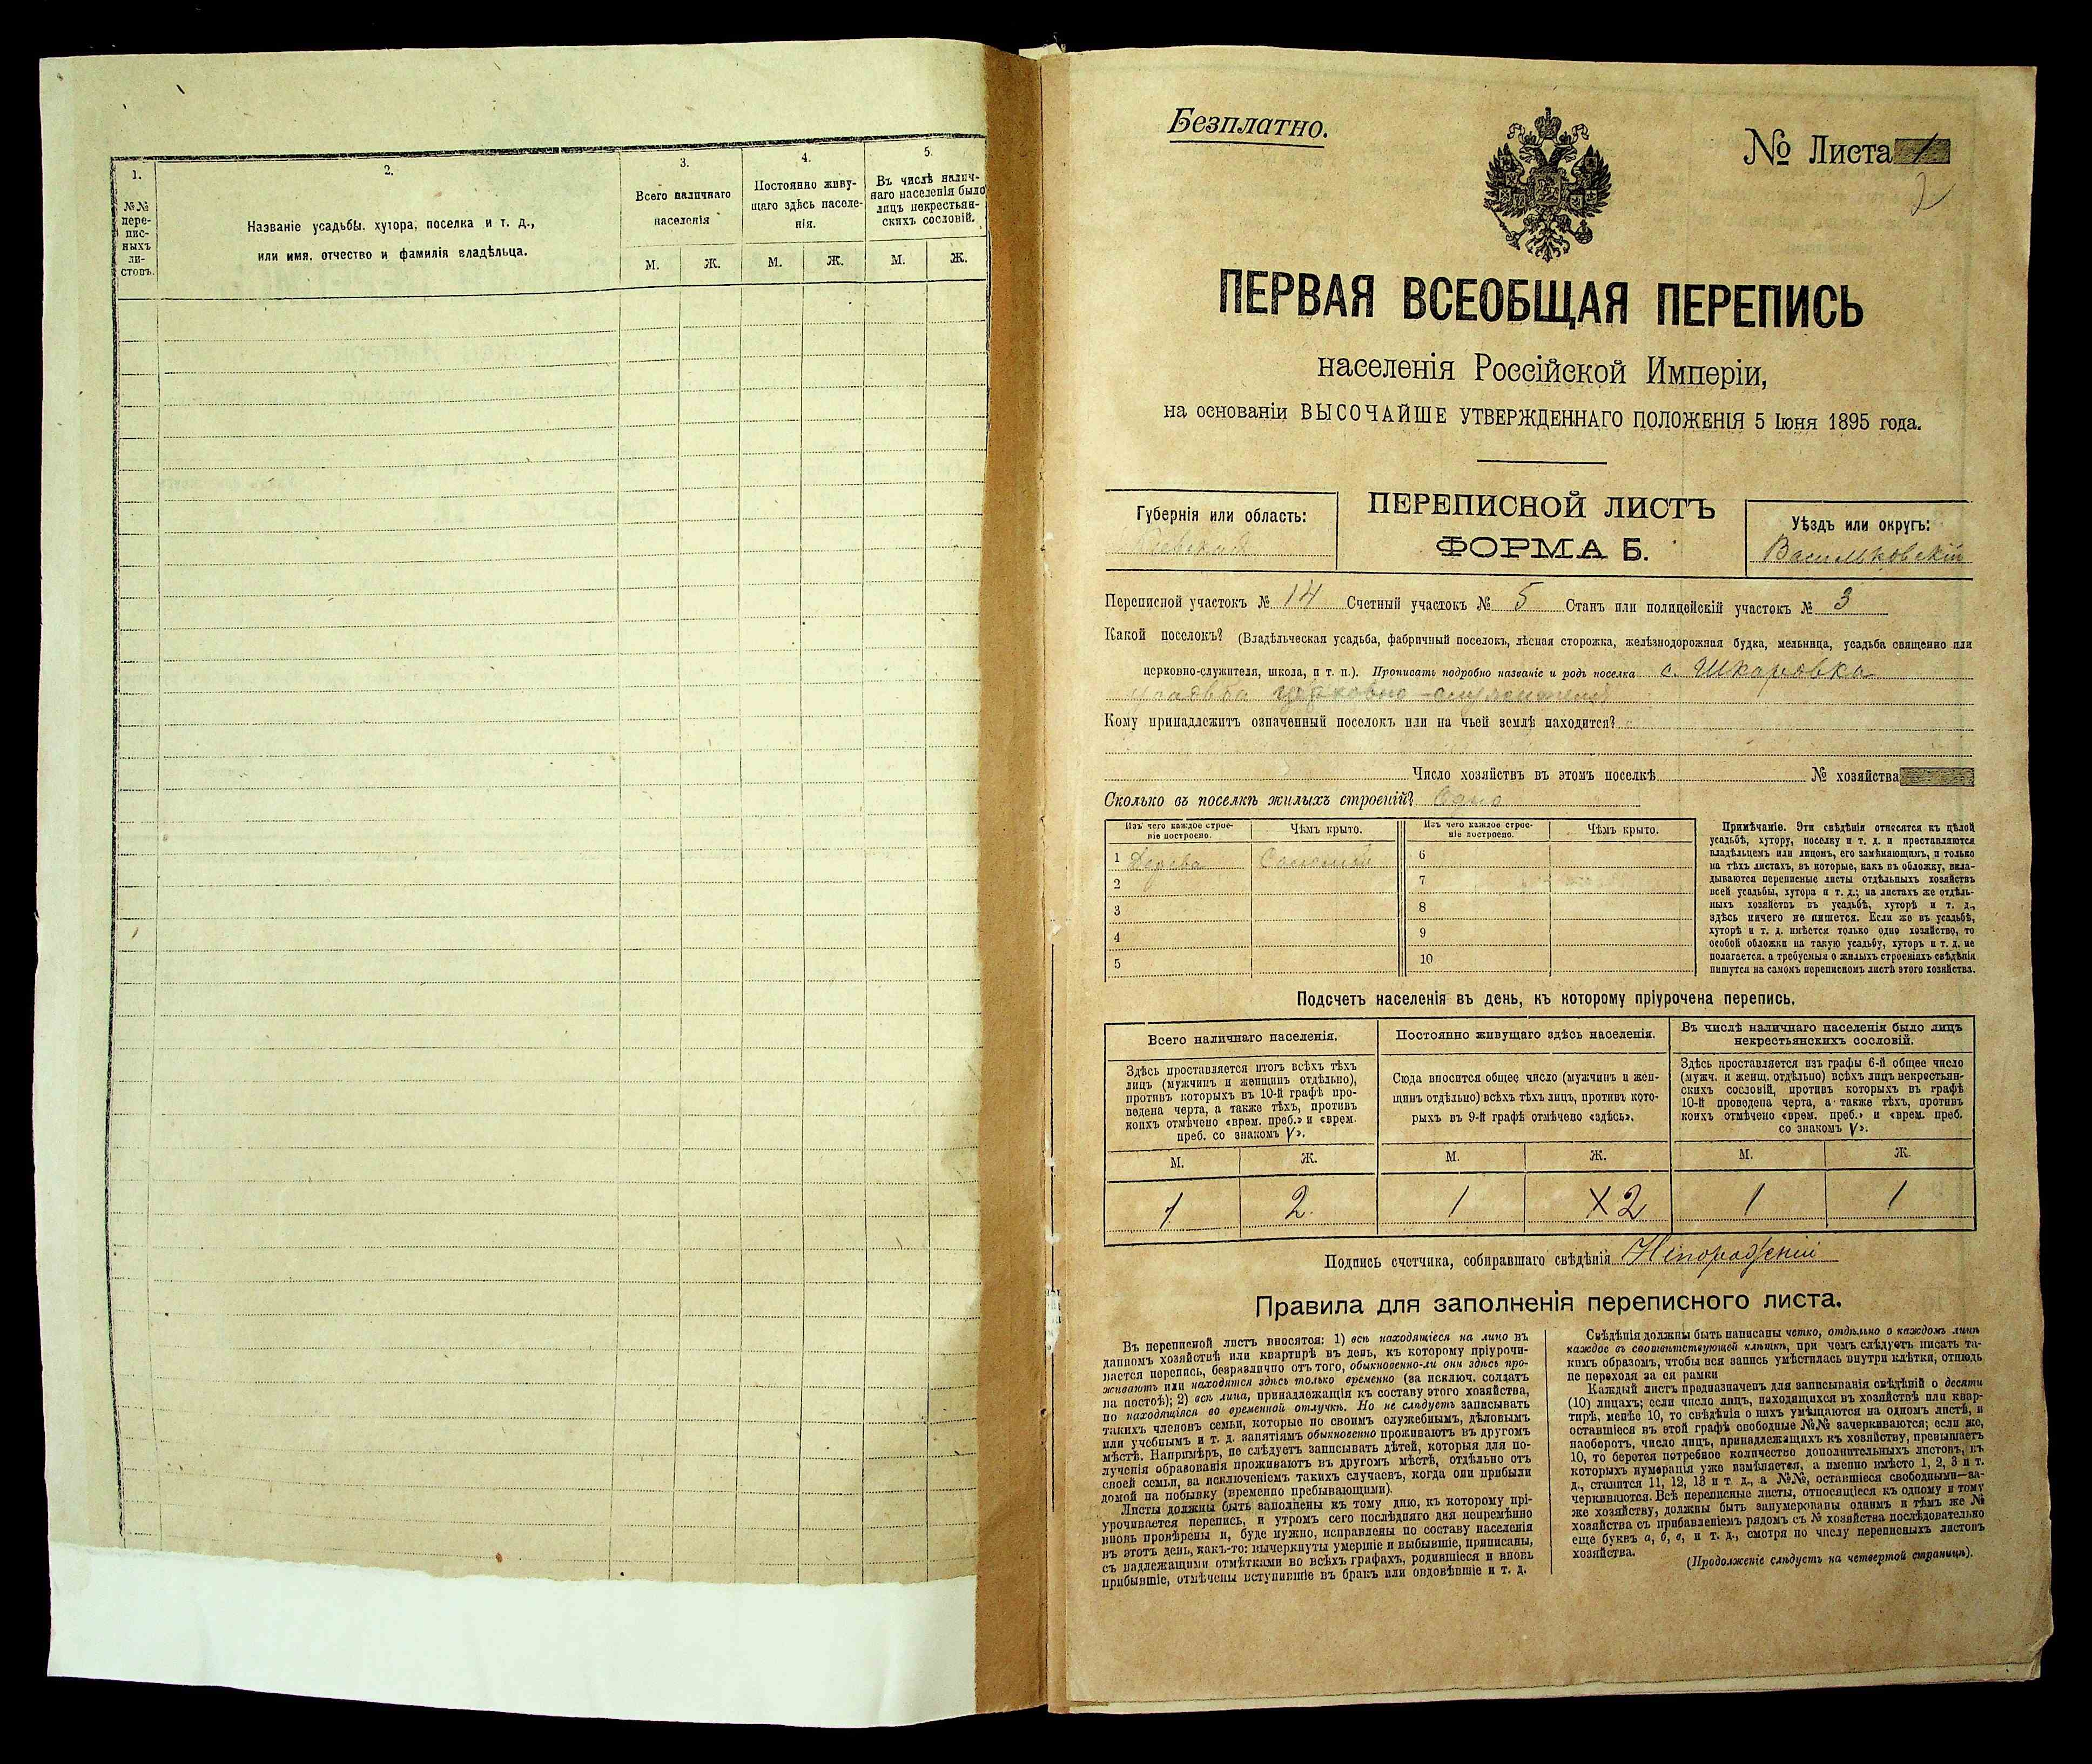 1.
2.
3.
4.
5.
№№ пере-
пис-
ныхъ
ли-
стовъ.
Названіе усадьбы, хутора, поселка и т. д.,
или имя, отчество и фамилія владѣльца.
Всего наличнаго
населенія
Постоянно живу-
щаго здѣсь населе-
нія.
Въ числѣ налич-
наго населенія было
лицъ некрестьян-
скихъ сословій.
М. Ж. М. Ж. М. Ж.
Безплатно.
№ Листа 1
2
ПЕРВАЯ ВСЕОБЩАЯ ПЕРЕПИСЬ
населенія Россійской Имперіи,
на основаніи ВЫСОЧАЙШЕ УТВЕРЖДЕННАГО ПОЛОЖЕНІЯ 5 Іюня 1895 года.
Губернія или область:
Кіевская
ПЕРЕПИСНОЙ ЛИСТЪ
ФОРМА Б.
Уѣздъ или округъ:
Васильковскій
Переписной участокъ № 14 Счетный участокъ № 5 Станъ или полицейскій участокъ № 3
Какой поселокъ? (Владѣльческая усадьба, фабричный поселокъ, лѣсная сторожка, желѣзнодорожная будка, мельница, усадьба священно или
церковно-служителя, школа, и т. п.). Прописать подробно названіе и родъ поселка с. Шкаровка
усадьба церковно-служителя
Кому принадлежитъ означенный поселокъ или на чьей землѣ находится?
Число хозяйствъ въ этомъ поселкѣ № хозяйства
Сколько въ поселкѣ жилыхъ строеній? Одно
Изъ чего каждое строе-
ніе построено.
Чѣмъ крыто.
Изъ чего каждое строе-
ніе построено.
Чѣмъ крыто.
1 Дерева Соломой 6
2 7
3 8
4 9
5 10
Примѣчаніе. Эти свѣдѣнія относятся къ цѣлой
усадьбѣ, хутору, поселку и т. д. и проставляются
владѣльцемъ или лицомъ, его замѣняющимъ, и только
на тѣхъ листахъ, въ которые, какъ въ обложку, вкла-
дываются переписные листы отдѣльныхъ хозяйствъ
всей усадьбы, хутора и т. д.; на листахъ же отдѣль-
ныхъ хозяйствъ въ усадьбѣ, хуторѣ и т. д.,
здѣсь ничего не пишется. Если же въ усадьбѣ,
хуторѣ и т. д. имѣется только одно хозяйство, то
особой обложки на такую усадьбу, хуторъ и т. д. не
полагается, а требуемыя о жилыхъ строеніяхъ свѣдѣнія
пишутся на самомъ переписномъ листѣ этого хозяйства.
Подсчетъ населенія въ день, къ которому пріурочена перепись.
Всего наличнаго населенія.
Здѣсь проставляется итогъ всѣхъ тѣхъ
лицъ (мужчинъ и женщинъ отдѣльно),
противъ которыхъ въ 10-й графѣ про-
ведена черта, а также тѣхъ, противъ
коихъ отмѣчено «врем. преб.» и «врем.
преб. со знакомъ V».
Постоянно живущаго здѣсь населенія.
Сюда вносится общее число (мужчинъ и жен-
щинъ отдѣльно) всѣхъ тѣхъ лицъ, противъ кото-
рыхъ въ 9-й графѣ отмѣчено «здѣсь».
Въ числѣ наличнаго населенія было лицъ
некрестьянскихъ сословій.
Здѣсь проставляется изъ графы 6-й общее число
(мужч. и женщ. отдѣльно) всѣхъ лицъ некрестьян-
скихъ сословій, противъ которыхъ въ графѣ
10-й проведена черта, а также тѣхъ, противъ
коихъ отмѣчено «врем. преб.» и «врем. преб.
со знакомъ V».
М. Ж. М. Ж. М. Ж.
1 2 1 2 1 1
Подпись счетчика, собиравшаго свѣдѣнія
Правила для заполненія переписного листа.
Въ переписной листъ вносятся: 1) всѣ находящіеся на лицо въ
данномъ хозяйствѣ или квартирѣ въ день, къ которому пріурочи-
вается перепись, безразлично отъ того, обыкновенно-ли они здѣсь про-
живаютъ или находятся здѣсь только временно (за исключ. солдатъ
на постоѣ); 2) всѣ лица, принадлежащія къ составу этого хозяйства,
но находящіяся во временной отлучкѣ. Но не слѣдуетъ записывать
такихъ членовъ семьи, которые по своимъ служебнымъ, дѣловымъ
или учебнымъ и т. д. занятіямъ обыкновенно проживаютъ въ другомъ
мѣстѣ. Напримѣръ, не слѣдуетъ записывать дѣтей, которыя для по-
лученія образованія проживаютъ въ другомъ мѣстѣ, отдѣльно отъ
своей семьи, за исключеніемъ такихъ случаевъ, когда они прибыли
домой на побывку (временно пребывающими).
Листы должны быть заполнены къ тому дню, къ которому прі-
урочивается перепись, и утромъ сего послѣдняго дня непремѣнно
вновь провѣрены и, буде нужно, исправлены по составу населенія
въ этотъ день, какъ-то: вычеркнуты умершіе и выбывшіе, приписаны,
съ надлежащими отмѣтками во всѣхъ графахъ, родившіеся и вновь
прибывшіе, отмѣчены вступившіе въ бракъ или овдовѣвшіе и т. д.
Свѣдѣнія должны быть написаны четко, отдѣльно о каждомъ лицѣ
каждое въ соотвѣтствующей клѣткѣ, при чемъ слѣдуетъ писать та-
кимъ образомъ, чтобы вся запись умѣстилась внутри клѣтки, отнюдь
не переходя за ея рамки
Каждый листъ предназначенъ для записыванія свѣдѣній о десяти
(10) лицахъ; если число лицъ, находящихся въ хозяйствѣ или квар-
тирѣ, менѣе 10, то свѣдѣнія о нихъ умѣщаются на одномъ листѣ, и
оставшіеся въ этой графѣ свободные №№ зачеркиваются; если же,
наоборотъ, число лицъ, принадлежащихъ къ хозяйству, превышаетъ
10, то берется потребное количество дополнительныхъ листовъ, въ
которыхъ нумерація уже измѣняется, а именно вмѣсто 1, 2, 3 и т.
д., ставится 11, 12, 13 и т. д., а №№, оставшіеся свободными—за-
черкиваются. Всѣ переписные листы, относящіеся къ одному и тому
же хозяйству, должны быть занумерованы однимъ и тѣмъ же №
хозяйства съ прибавленіемъ рядомъ съ № хозяйства послѣдовательно
еще буквъ а, б, в, и т. д., смотря по числу переписныхъ листовъ
хозяйства.
(Продолженіе слѣдуетъ на четвертой страницѣ).